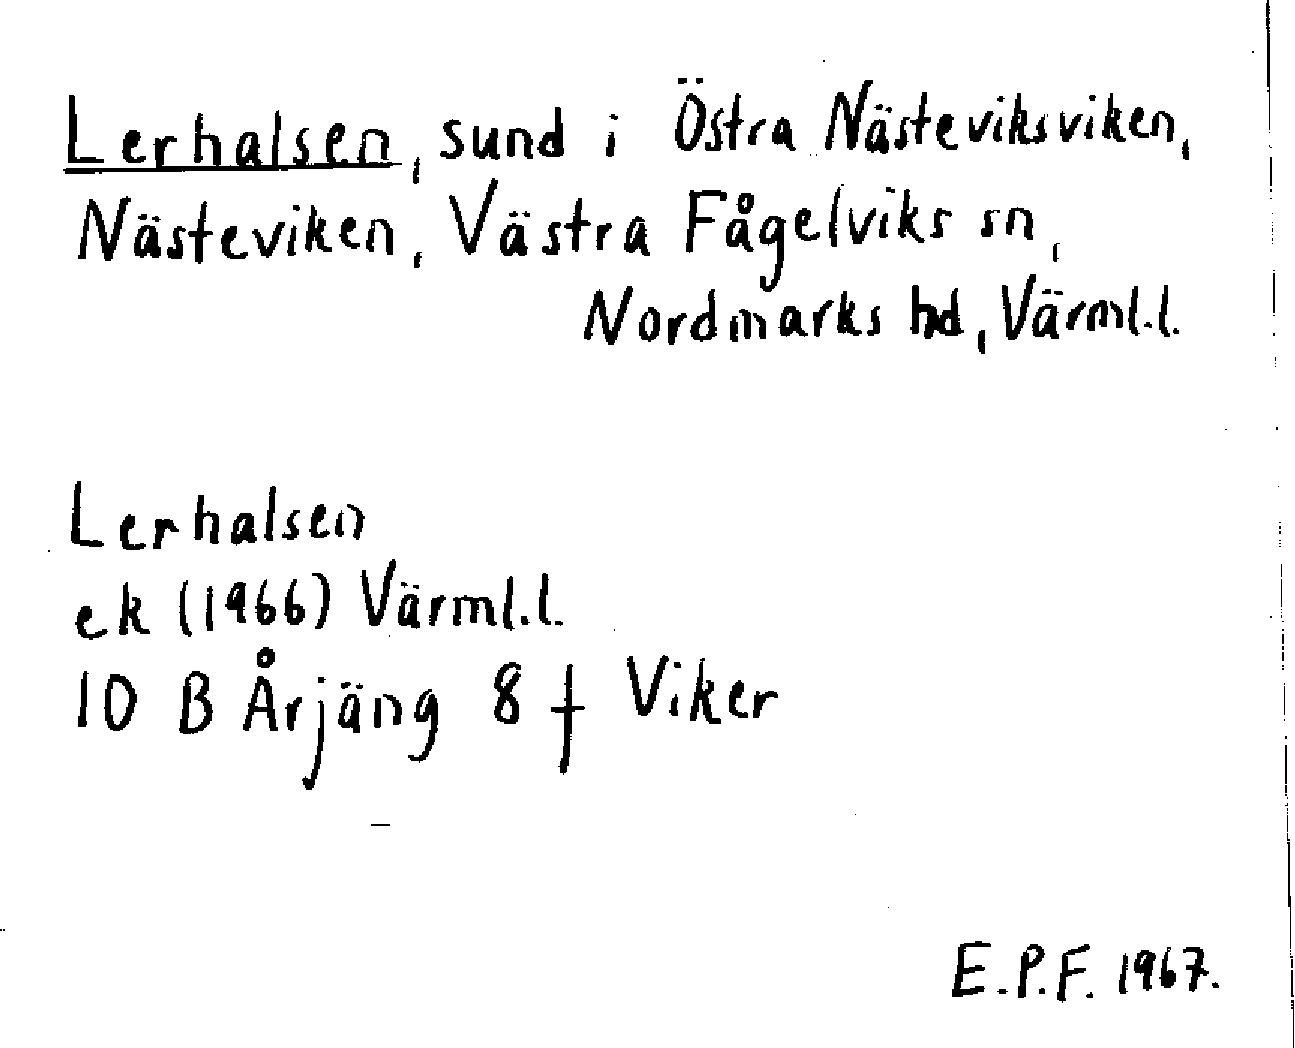 Lerhalsen, sund i Östra Nästeviksviken,
Nästeviken, Västra Fågelviks sn,
Nordmarks hd, Värml.l.
Lerhalsen
ek (1966) Värml.l.
10 B Årjäng 8 f Viker
E.P.F. 1967.